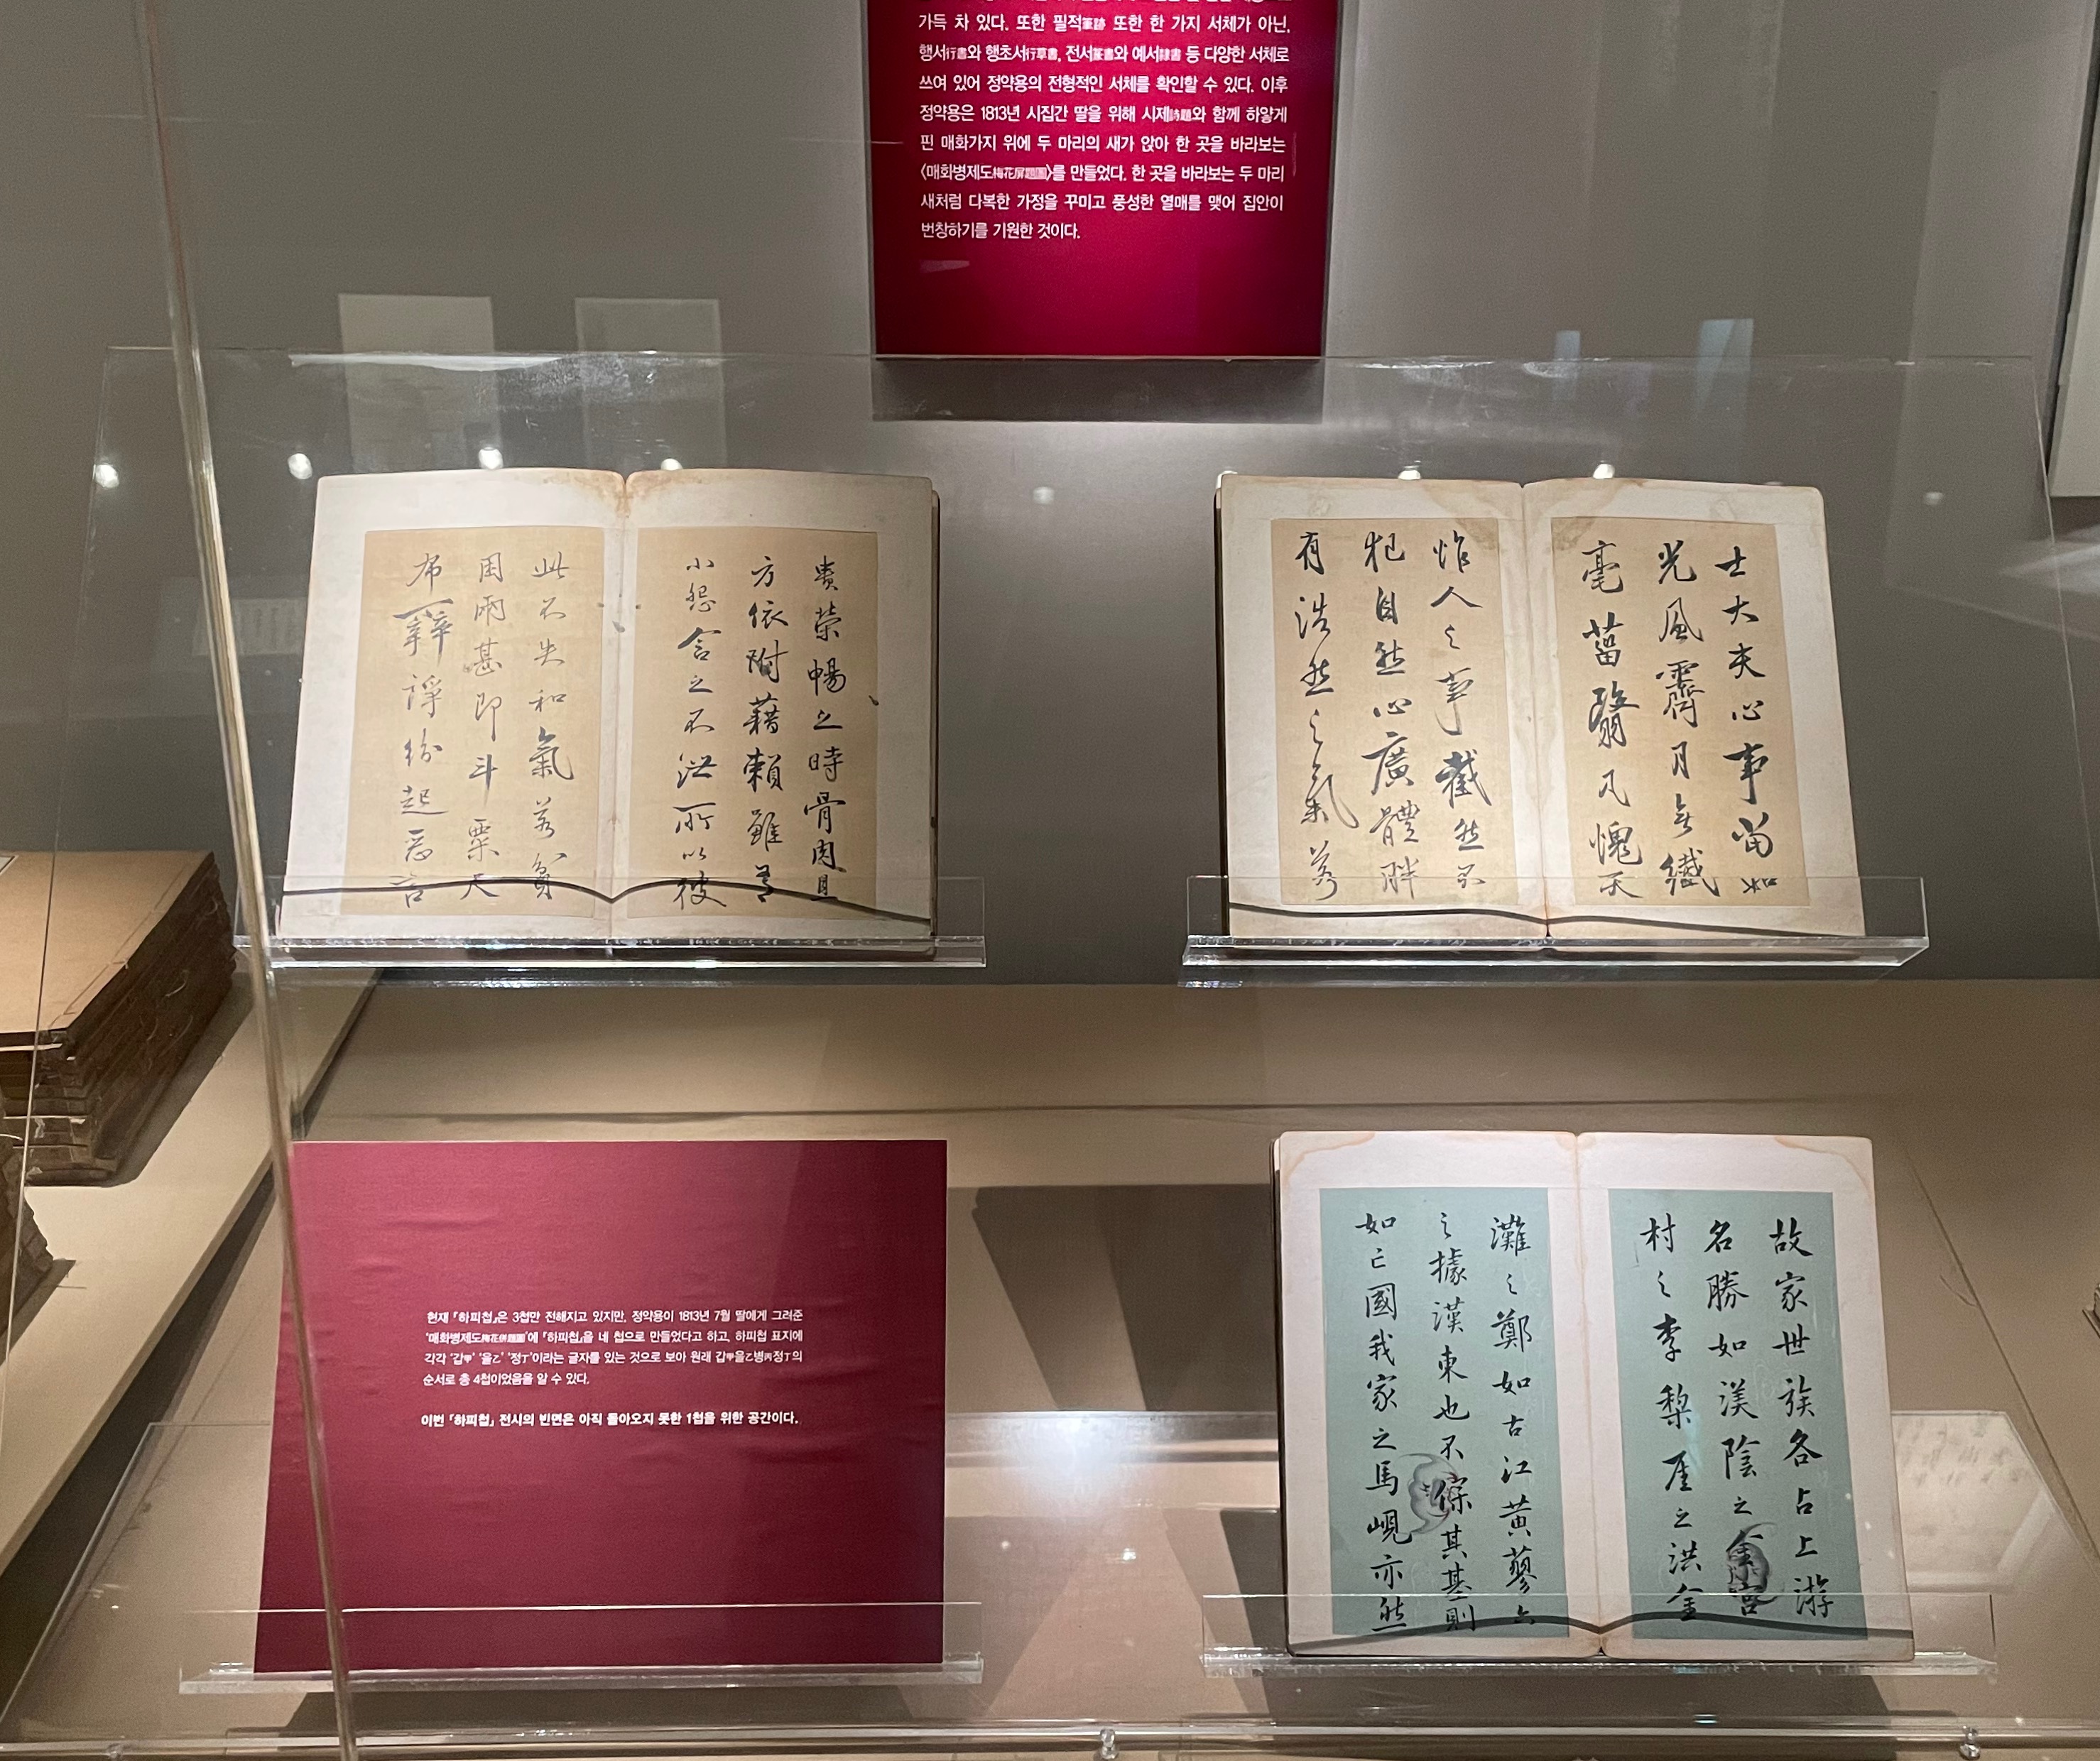 가득 차 있다. 또한 필적筆跡 또한 한 가지 서체가 아닌,
행서行書와 행초서行草書, 전서篆書와 예서隸書 등 다양한 서체로
쓰여 있어 정약용의 전형적인 서체를 확인할 수 있다. 이후
정약용은 1813년 시집간 딸을 위해 시제詩題와 함께 하얗게
핀 매화가지 위에 두 마리의 새가 앉아 한 곳을 바라보는
〈매화병제도梅花屛題圖〉를 만들었다. 한 곳을 바라보는 두 마리
새처럼 다복한 가정을 꾸미고 풍성한 열매를 맺어 집안이
번창하기를 기원한 것이다.
貴榮暢之時骨肉且
方依附藉賴雖有
小怨含之不泄所以彼
此不失和氣若貧
困兩甚即斗粟尺
布辭諍紛起惡言
士大夫心事當如
光風霽月無纖
毫菑翳凡愧天
怍人之事截然不
犯自然心廣體胖
有浩然之氣若
현재 『하피첩』은 3첩만 전해지고 있지만, 정약용이 1813년 7월 딸에게 그려준
'매화병제도梅花倂題圖'에 『하피첩』을 네 첩으로 만들었다고 하고, 하피첩 표지에
각각 '갑甲' '을乙' '정丁'이라는 글자를 있는 것으로 보아 원래 갑甲을乙병丙정丁의
순서로 총 4첩이었음을 알 수 있다.
이번 『하피첩』 전시의 빈면은 아직 돌아오지 못한 1첩을 위한 공간이다.
故家世族各占上游
名勝如渼陰之金宮
村之李梨厓之洪金
灘之鄭如古江黃蓼六
之據漢東也不保其基則
如亡國我家之馬峴亦然